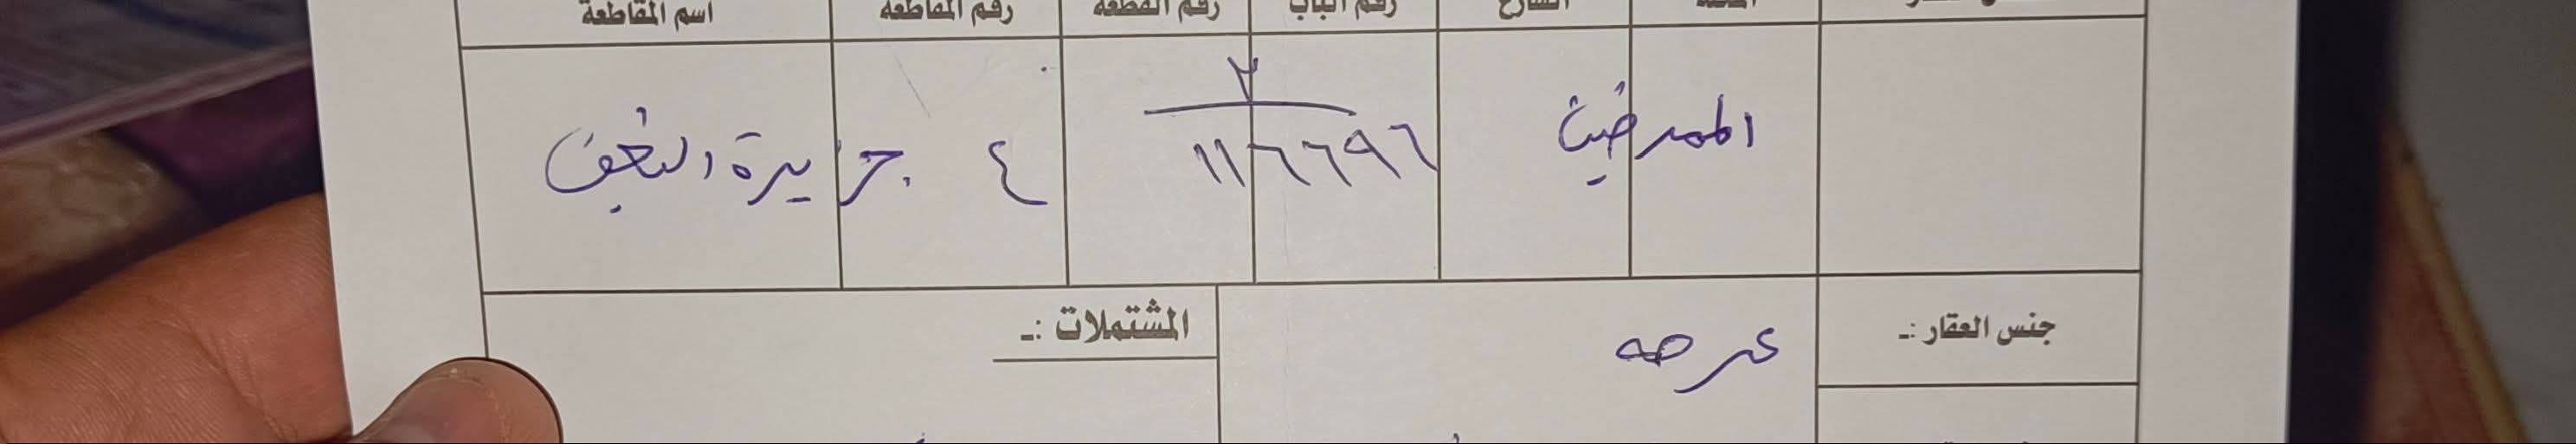 المحلة الشارع رقم الباب رقم القطعة رقم المقاطعة اسم المقاطعة
٢
الممرضين ١١٦٦٩٦ ٤ جزيرة النجف
جنس العقار :ـ عرصه المشتملات :ـ